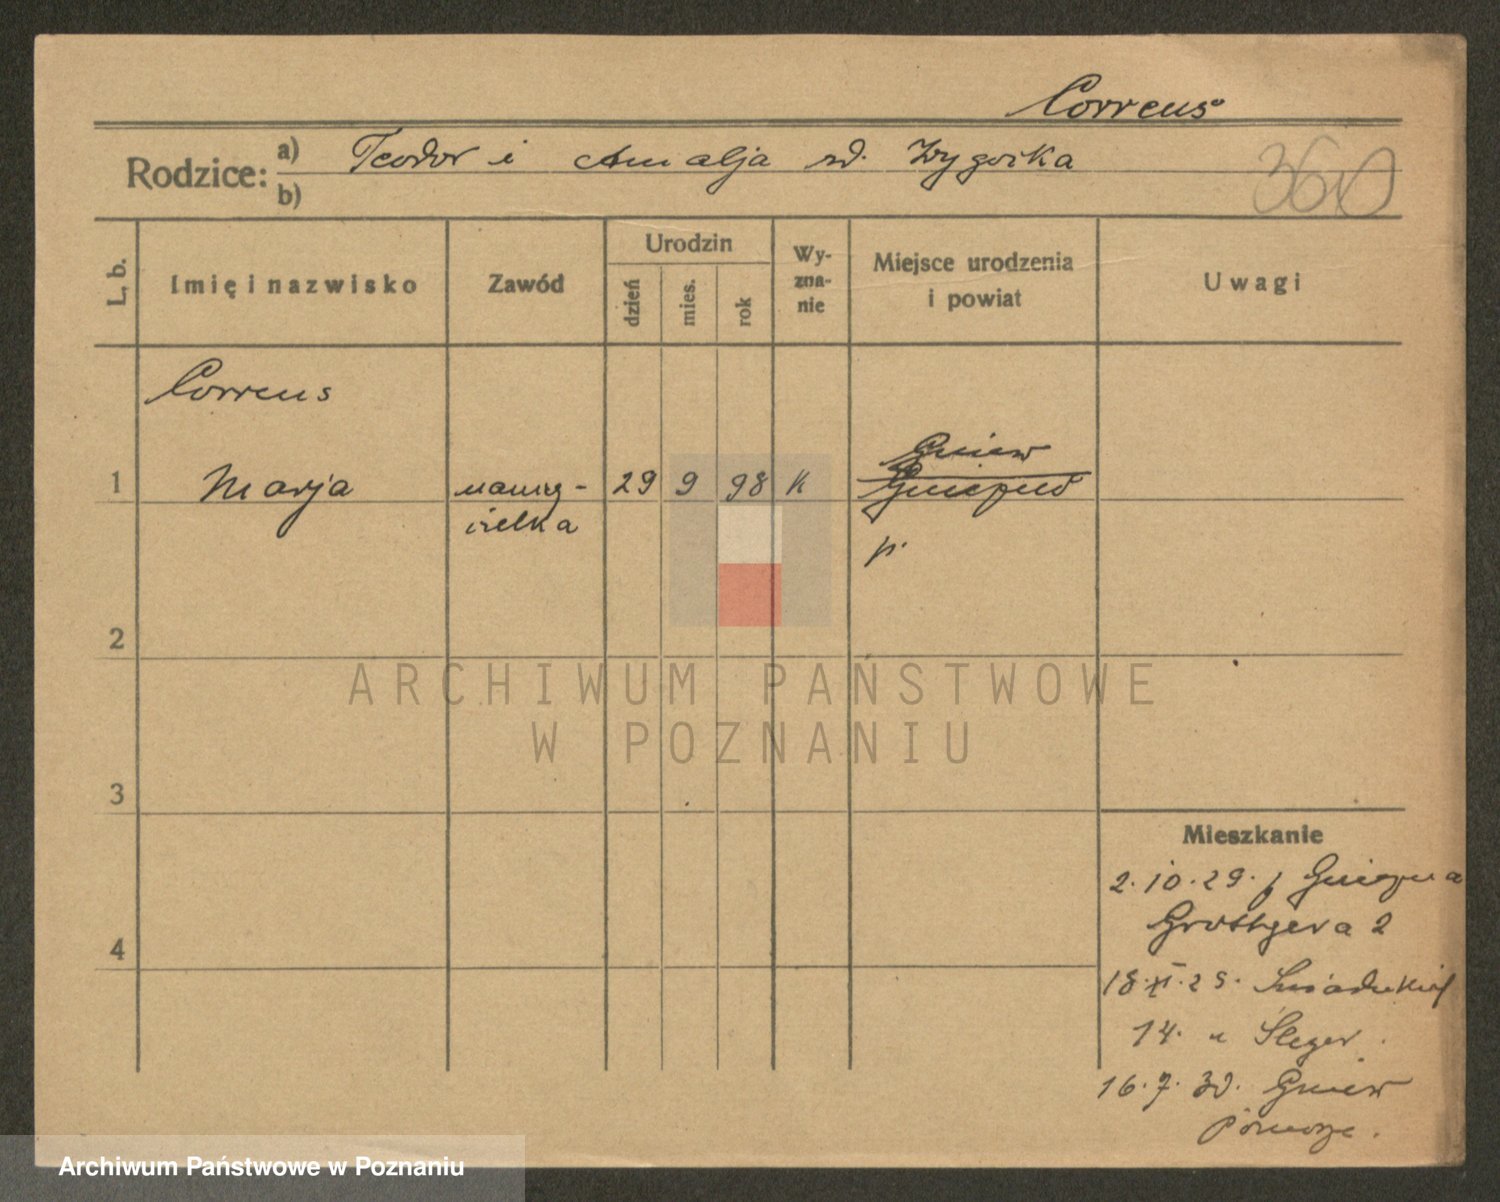 Correus
Rodzice: a) Teodor i Amalja zd. Wygocka
b)
360
L. b.
Imię i nazwisko
Zawód
Urodzin
dzień
mies.
rok
Wy-
zna-
nie
Miejsce urodzenia
i powiat
Uwagi
Correus
Gniew
1 Marja nauczy- 29 9 98 K Gniezno
cielka
p.
2
ARCHIWUM PAŃSTWOWE
W POZNANIU
3
Mieszkanie
2.10.29. z Gniezna
Grottgera 2
4
18.XI.29. Śniadeckich
14. u Sleger.
16.7.30. Gniew
Pomorze.
Archiwum Państwowe w Poznaniu